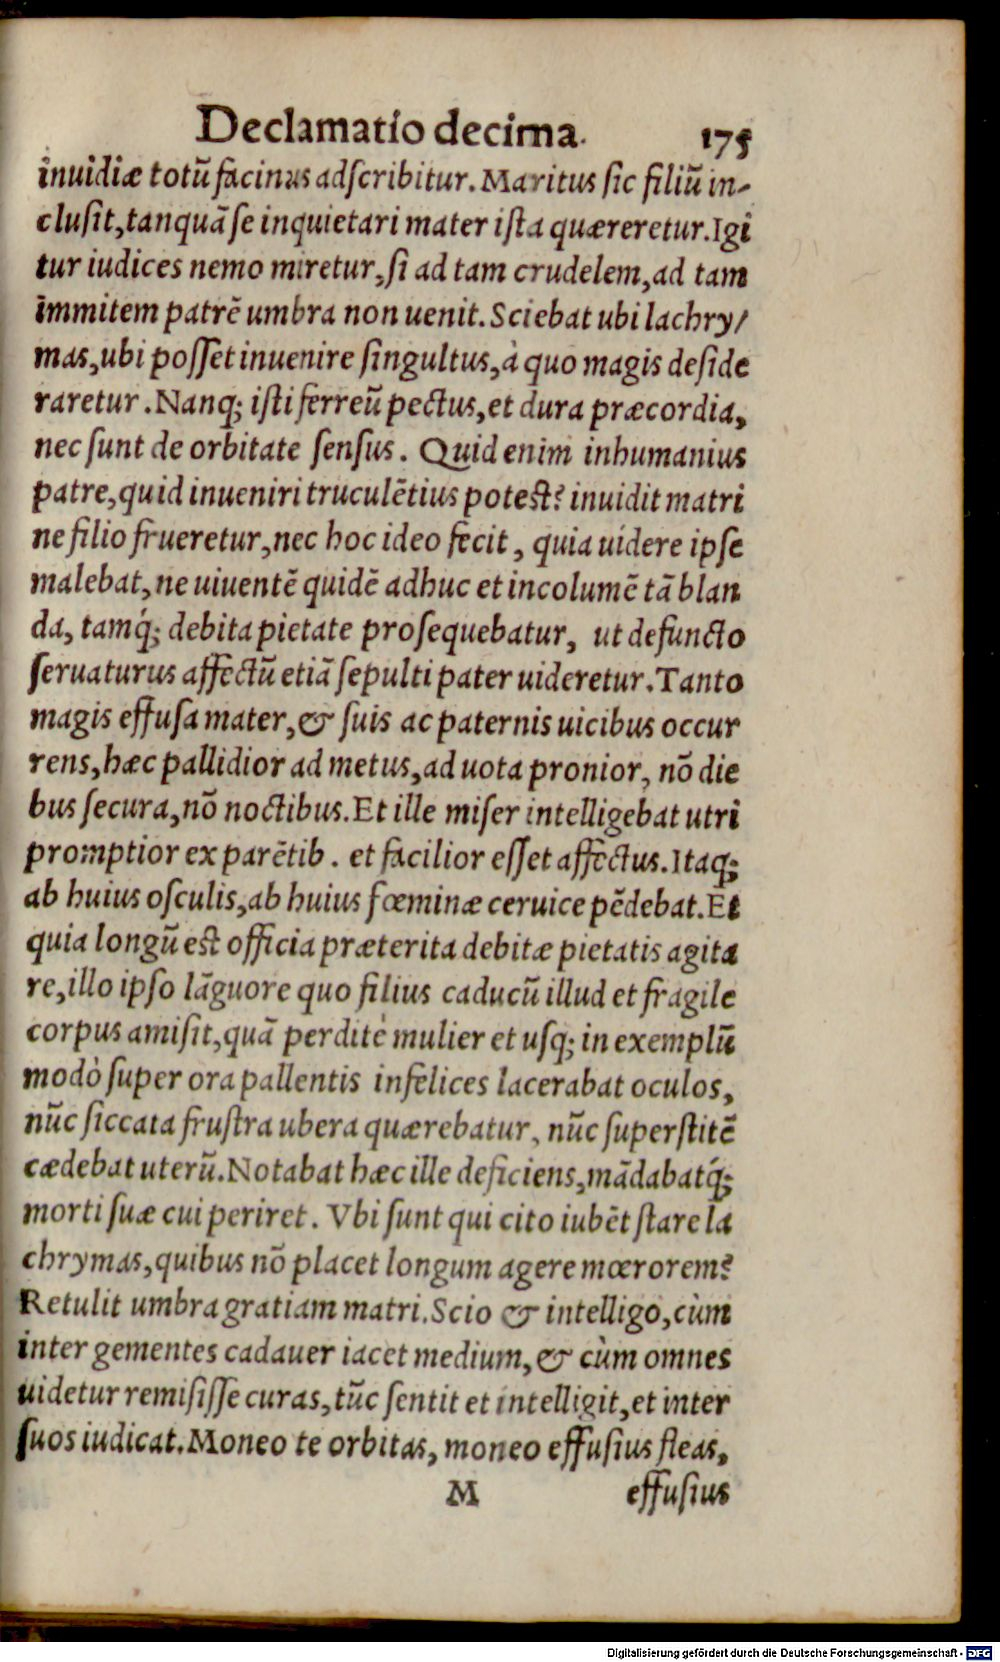 Declamatio decima. 175
inuidiæ totũ facinus adſcribitur. Maritus ſic filiũ in-
cluſit, tanquã ſe inquietari mater iſta quæreretur. Igi
tur iudices nemo miretur, ſi ad tam crudelem, ad tam
immitem patrẽ umbra non uenit. Sciebat ubi lachry/
mas, ubi poſſet inuenire ſingultus, à quo magis deſide
raretur. Nanq; iſti ferreũ pectus, et dura præcordia,
nec ſunt de orbitate ſenſus. Quid enim inhumanius
patre, quid inueniri truculẽtius poteſt? inuidit matri
ne filio frueretur, nec hoc ideo fecit, quia uidere ipſe
malebat, ne uiuentẽ quidẽ adhuc et incolumẽ tã blan
da, tamq́; debita pietate proſequebatur, ut defuncto
ſeruaturus affectũ etiã ſepulti pater uideretur. Tanto
magis effuſa mater, & ſuis ac paternis uicibus occur
rens, hæc pallidior ad metus, ad uota pronior, nõ die
bus ſecura, nõ noctibus. Et ille miſer intelligebat utri
promptior ex parẽtib. et facilior eſſet affectus. Itaq;
ab huius oſculis, ab huius fœminæ ceruice pẽdebat. Et
quia longũ eſt officia præterita debitæ pietatis agita
re, illo ipſo lãguore quo filius caducũ illud et fragile
corpus amiſit, quã perditè mulier et uſq; in exemplũ
modò ſuper ora pallentis infelices lacerabat oculos,
nũc ſiccata fruſtra ubera quærebatur, nũc ſuperſtitẽ
cædebat uterũ. Notabat hæc ille deficiens, mãdabatq́;
morti ſuæ cui periret. Vbi ſunt qui cito iubẽt ſtare la
chrymas, quibus nõ placet longum agere mœrorem?
Retulit umbra gratiam matri. Scio & intelligo, cùm
inter gementes cadauer iacet medium, & cùm omnes
uidetur remiſiſſe curas, tũc ſentit et intelligit, et inter
ſuos iudicat. Moneo te orbitas, moneo effuſius fleas,
M effuſius
Digitalisierung gefördert durch die Deutsche Forschungsgemeinschaft - DFG